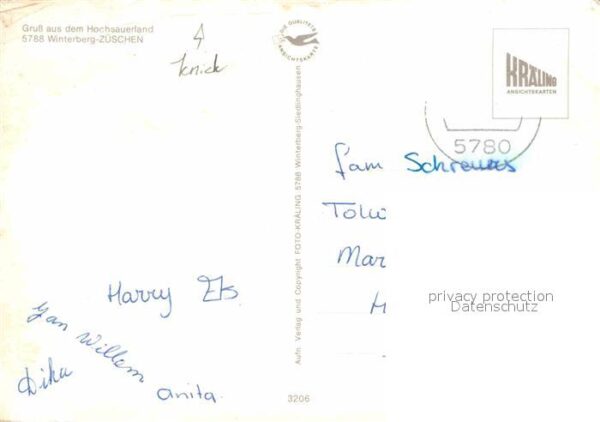 Gruß aus dem Hochsauerland
5788 Winterberg-ZÜSCHEN
knick
DIE QUALITÄTS
ANSICHTSKARTE
KRÄLING
ANSICHTSKARTEN
5780
Aufn. Verlag und Copyright FOTO-KRÄLING 5788 Winterberg-Siedlinghausen
fam Schreurs
Mar
privacy protection
Datenschutz
Harry
Jan Willem
Dika
anita.
3206